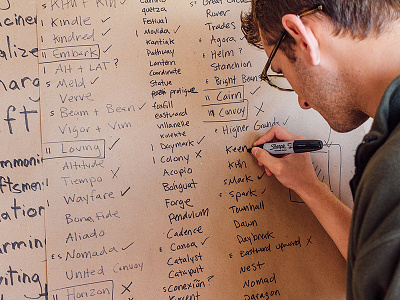 aciner
ialize
harg
ft
mmoni
ftsmen
ation
armin
riting
s KTH + Kin ✓
ı Kindle ✓
ı Kindred ✓
ıı Embark ✓
ı Alt + LAT ?
s Meld ✓
Verve
s Beam + Bean ✓
Vigor + Vim
ıı Loving ✓
Altitude
Tiempo ✗
Wayfare ✓
Bona Fide
Aliado
s Nomada ✓
United Convoy
ıı Horizon ✗
quetza
Festival
ı Movida ✓
Kantiak
Pathway
Lantern
Coordinate
Statue
prologue
Eastward
villanelle
ı Daymark ✓
ı Colony ✗
Acopio
Bohguat
Forge
Pendulum
Cadence
s Canoa ✓
Catalyst
Catapult
s Conexión ?
River
Trades
s Agora ✓
s Helm ?
Stanchion
s Bright Beans
ıı Cairn ✓
ıı Convoy ✗
s Higher Grounds ✓
Keen
KTH
s Mark ✓
s Spark ✓
Townhall
Dawn
Daybreak
s Eastward Upward ✗
Nest
Nomad
Paragon
Sharpie